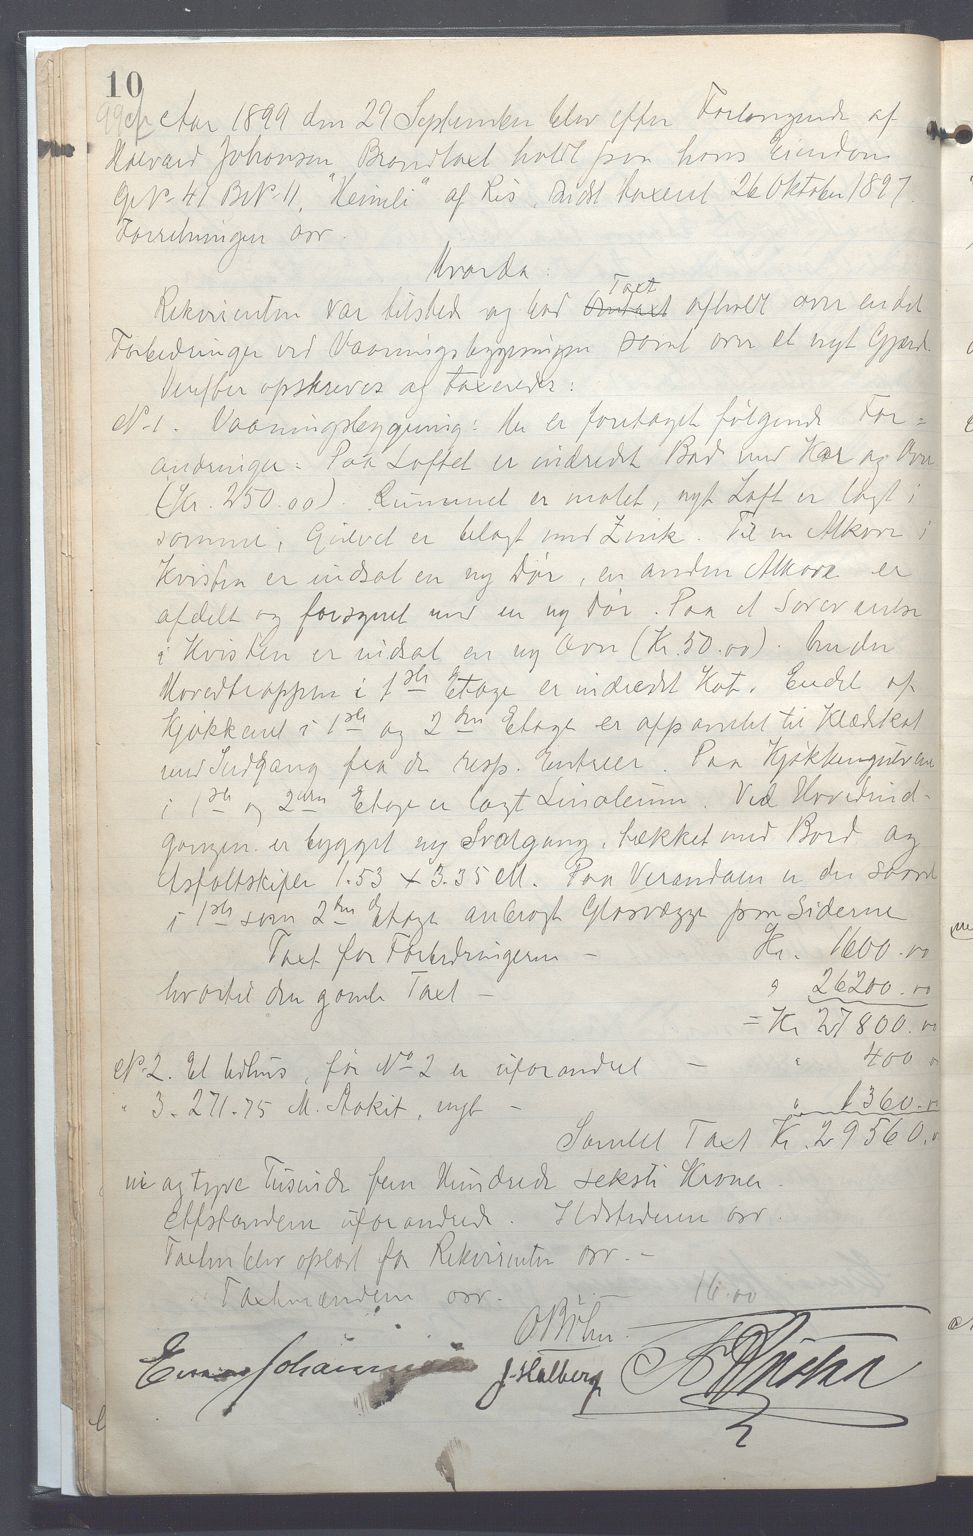 10
Aar 1899 den 29 September blev efter Forlangende af
Halvard Johansen Brandtaxt holdt paa hans Eiendom
G.N. 41 B.N. 11, "Heimli" af Ris, sidst taxeret 26 Oktober 1897.
Forretningen osv.
Hvorda:
Rekvirenten var tilstede og bad Omtaxt Taxt afholdt over endel
Forbedringer ved Vaaningsbygningen samt over et nyt Gjærde
Derefter opskreves og taxeredes:
N. 1. Vaaningsbygning: Her er foretaget følgende For=
andringer: Paa Loftet er indredet Bad med Kar og Ovn
(Kr. 250.00). Rummet er malet, nyt Loft er lagt i
samme, Gulvet er belagt med Zink. Til en Alkove i
Kvisten er indsat en ny Dør, en anden Alkove er
afdelt og forsynet med en ny Dør. Paa et Soveværelse
i Kvisten er indsat en ny Ovn (Kr. 50.00). Under
Hovedtrappen i 1ste Etage er indredet Kot. Endel af
Kjøkkenet i 1ste og 2den Etage er afpanelet til Klædskot
med Indgang fra de resp. Entreer. Paa Kjøkkengulvene
i 1ste og 2den Etage er lagt Linoleum. Ved Hovedind-
gangen er bygget ny Svalgang, tækket med Bord og
Asfaltskifer 1.53 x 3.35 M. Paa Verandaen er der saavel
i 1ste som 2den Etage anbragt Glasvægge paa Siderne
Taxt for Forbedringerne - Kr. 1600.00
hvortil den gamle Taxt - " 26200.00
= Kr 27800.00
N. 2. Et Udhus, før No 2 er uforandret - " 400.00
" 3. 271.75 M. Stakit, nyt - " 1360.00
Samlet Taxt Kr. 29560.00
ni og tyve Tusinde fem Hundrede seksti Kroner.
Afstandene uforandrede. Ildstederne osv.
Taxten blev oplæst for Rekvirenten osv. -
Taxtmændene osv. 16.00
O Bøhm.
J. Halberg